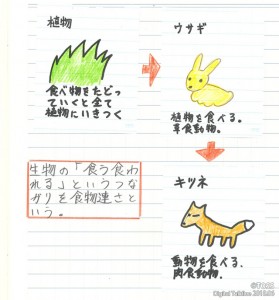 植物
食べ物をたどっ
ていくと全て
植物にいきつく
ウサギ
植物を食べる。
草食動物。
生物の「食う食わ
れる」というつな
がりを食物連さと
いう。
キツネ
動物を食べる、
肉食動物。
©TOSS
Digital Talkline 2010.06